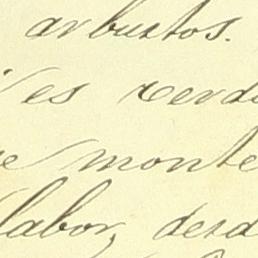 arbustos.
es verd
e monte
labor, desd